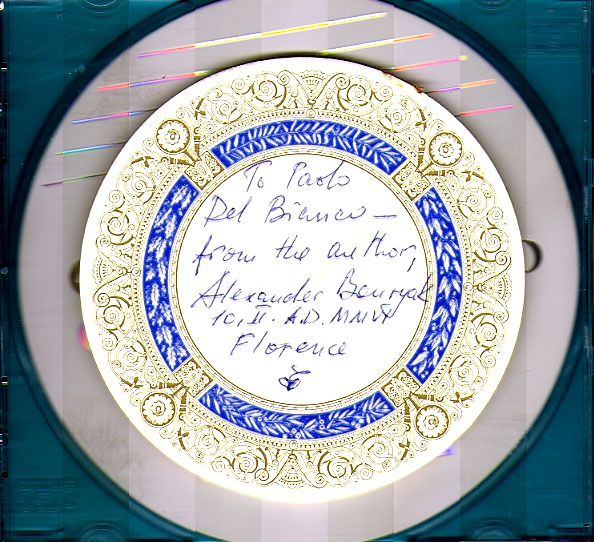 To Paolo
Del Bianco —
from the author,
Alexander
10, II. A.D. MMVI
Florence